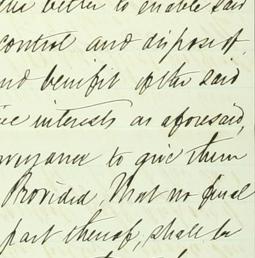 the better to enable said
control and dispose of
and benefit of the said
interests as aforesaid,
to give them
Provided, that no final
part thereof, shall be